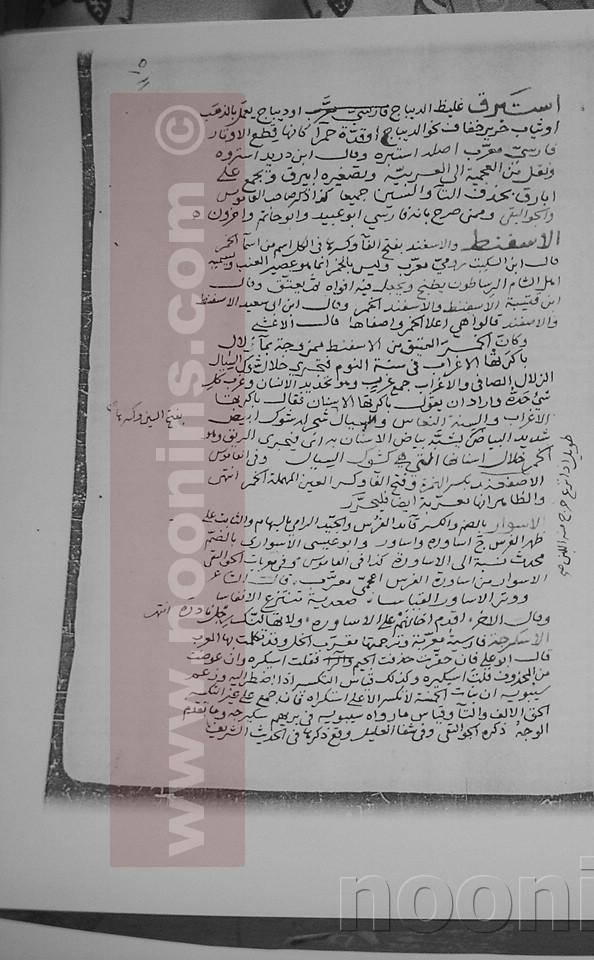 استبرق غليظ الديباج فارسي معرب او ديباج يعمل بالذهب
او ثياب حرير صفاق نحو الديباج او قدة حمرآ كانها قطع الاوتار
فارسي معرب اصله استبره وقال ابن دريد استروه
ونقل من العجمية الى العربية وتصغيره ابيرق وتجمع على
ابارق بحذف التا والسين جميعا كذا ذكر صاحب القاموس
والجواليقي وممن صرح بانه فارسي ابو عبيد وابو حاتم واخرون
الاسفنط والاسفند بفتح الفا وكسرها في الكل اسم من اسمآ الخمر
قال ابن السكيت رومي معرب وليس بالخمر انما هو عصير العنب ويسميه
اهل الشام الرساطون يطبخ ويجعل فيه افواه ثم يعتق وقال
ابن قتيبة الاسفنط والاسفند الخمر وقال ابن ابي سعيد الاسفنط
والاسفند قالوا هي اعلا الخمر واصفاها قال الاعشى
وكان الخمر العتيق من الاسفنط ممزوجة بمآ زلال
باكرتها الاغراب في سنة النوم فتجري خلال شوك السيال
الزلال الصافي والاغراب جمع غرب وهو تحديد الاسنان وغرب كل
شي حده واراد ان يقول باكرتها الاسنان فقال باكرتها
الاغراب والسنة النعاس والسيال شجر له شوك ابيض
بفتح السين وكسرها
شديد البياض يشبه بياض الاسنان به اي فتجري الريق وهو
الخمر خلال اسنانها التي هي كشوك السيال وفي القاموس
طويل
الاصفعند بكسر الهمزة وفتح الفا وكسر العين المهملة الخمر انتهى
والظاهر انها معربة ايضا فليحرر
الاسوار بالضم والكسر قائد الفرس والجيد الرامي بالسهام والثابت على
ظهر الفرس ج اساورة واساور وابو عيسى الاسواري بالضم
محدث نسبة الى الاساورة كذا في القاموس وفي معربات الجواليقي
الاسوار من اساورة الفرس اعجمي معرب قال الشاعر
ووتر الاساور القياسا صغدية تنتزع الانفاسا
وقال الاخر اقدم اخانهم على الاساوره ولا تهالنك رجل نادرة انتهى
الاسكرجة فارسية معربة وترجمتها مقرب الخل وقد تكلمت بها العرب
قال ابو علي فان حقرت حذفت الجيم والرآ فقلت اسيكره وان عوضت
من المحذوف قلت اسيكيره وكذلك قياس التكسير اذا اضطر اليه وزعم
سيبويه ان بنات الخمسة لا تكسر الا على استكراه فان جمع على غير التكسير
الحق الالف والتآ وقياس ما رواه سيبويه في بريهم سكيرجه وما تقدم
الوجه ذكره الجواليقي وفي شفا الغليل وقع ذكرها في الحديث الشريف
www.nooniris.com ©
nooni